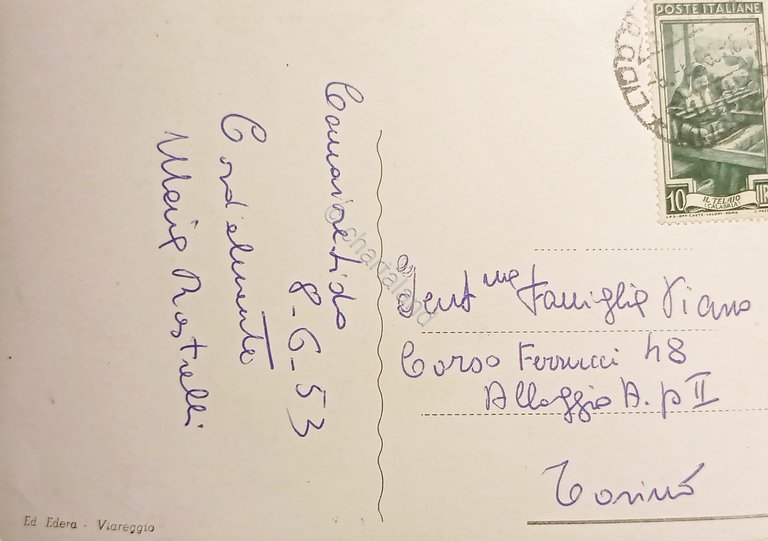 POSTE ITALIANE
10
IL TELAIO
(CALABRIA)
LIDO
Camaiore Lido
8-6-53
Cordialmente
Maria Rastrelli
Gent.ma Famiglia Viano
Corso Ferrucci 48
Alloggio A. p II
Torino
Ed Edera - Viareggio
© chartaland